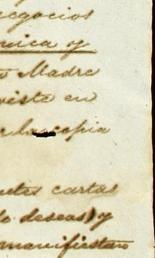 negocios
unica y
Madre
viste en
la copia
cartas
deseas) y
manifiestan